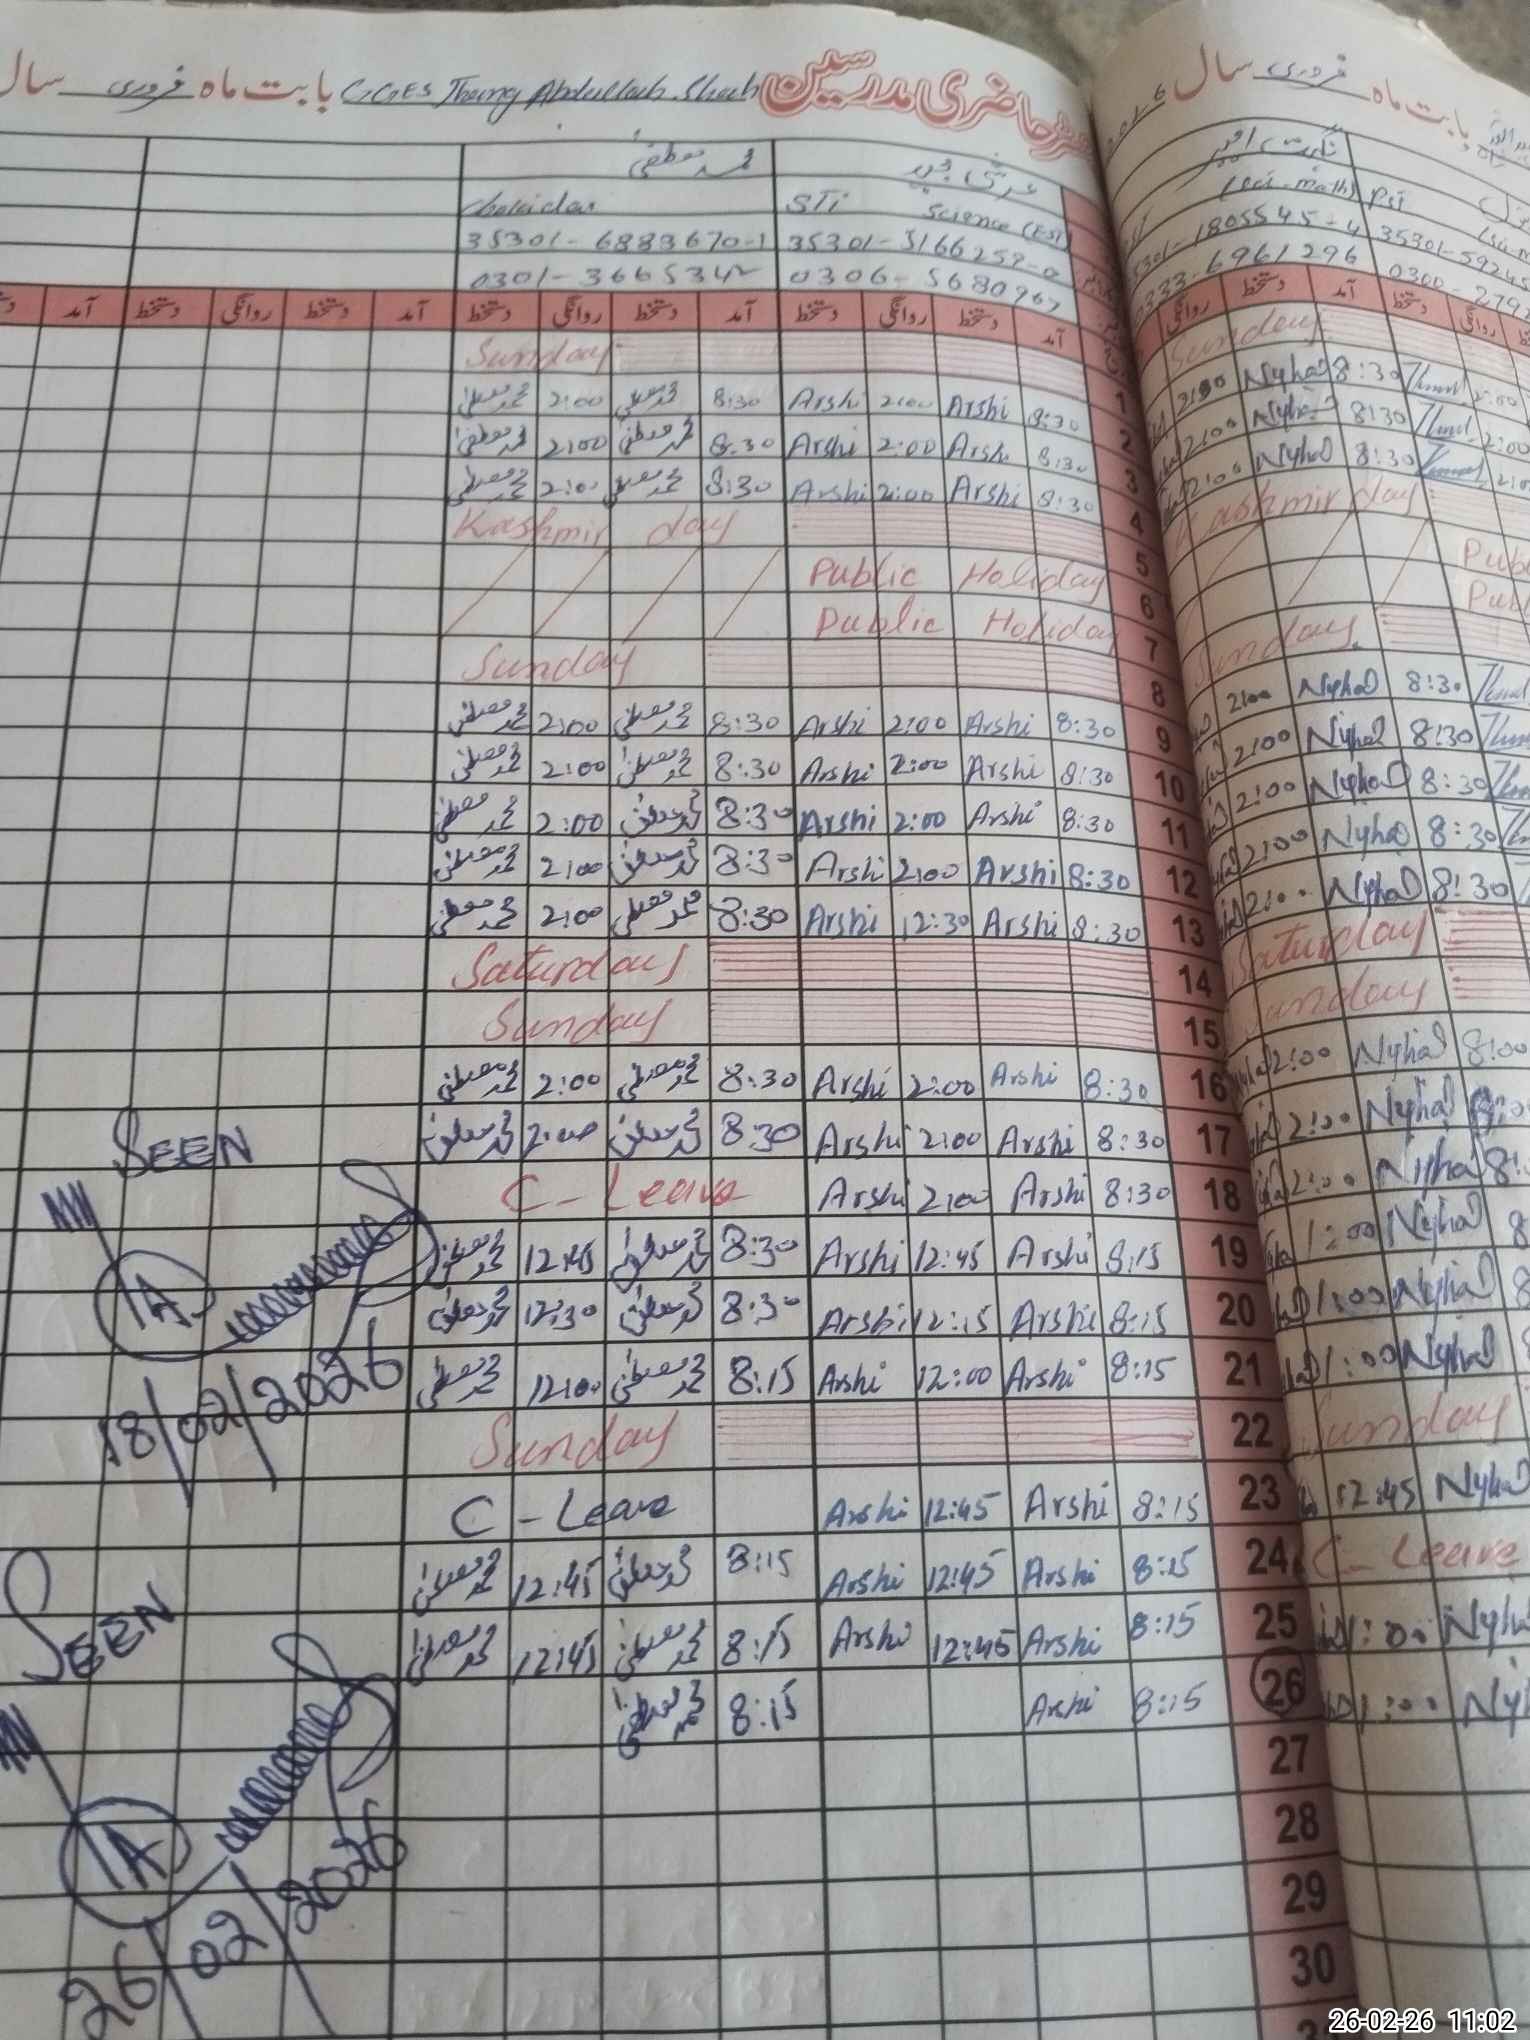 رجسٹر حاضری مدرسین GGES Jhang Abdullah Shah بابت ماہ فروری سال
عرشی محمد مصطفیٰ
STI Science (ESE) Chokidar
35301-6883670-1
0301-366534
0306-5680967
آمد دستخط روانگی دستخط آمد دستخط روانگی دستخط آمد دستخط روانگی دستخط آمد
1 Sunday
2 8:30 Arshi 2:00 Arshi 8:30 محمد مصطفیٰ 2:00 محمد مصطفیٰ
3 8:30 Arshi 2:00 Arshi 8:30 محمد مصطفیٰ 2:00 محمد مصطفیٰ
4 8:30 Arshi 2:00 Arshi 8:30 محمد مصطفیٰ 2:00 محمد مصطفیٰ
5 Kashmir day
6 Public Holiday
7 Public Holiday
8 Sunday
9 8:30 Arshi 2:00 Arshi 8:30 محمد مصطفیٰ 2:00 محمد مصطفیٰ
10 8:30 Arshi 2:00 Arshi 8:30 محمد مصطفیٰ 2:00 محمد مصطفیٰ
11 8:30 Arshi 2:00 Arshi 8:30 محمد مصطفیٰ 2:00 محمد مصطفیٰ
12 8:30 Arshi 2:00 Arshi 8:30 محمد مصطفیٰ 2:00 محمد مصطفیٰ
13 8:30 Arshi 12:30 Arshi 8:30 محمد مصطفیٰ 2:00 محمد مصطفیٰ
14 Saturday
15 Sunday
16 8:30 Arshi 2:00 Arshi 8:30 محمد مصطفیٰ 2:00 محمد مصطفیٰ
17 8:30 Arshi 2:00 Arshi 8:30 محمد مصطفیٰ 2:00 محمد مصطفیٰ
18 8:30 Arshi 2:00 Arshi C-Leave
19 8:15 Arshi 12:45 Arshi 8:30 محمد مصطفیٰ 12:45 محمد مصطفیٰ
20 8:15 Arshi 12:15 Arshi 8:30 محمد مصطفیٰ 12:30 محمد مصطفیٰ
21 8:15 Arshi 12:00 Arshi 8:15 محمد مصطفیٰ 12:00 محمد مصطفیٰ
22 Sunday
23 8:15 Arshi 12:45 Arshi C-Leave
24 8:15 Arshi 12:45 Arshi 8:15 محمد مصطفیٰ 12:45 محمد مصطفیٰ
25 8:15 Arshi 12:45 Arshi 8:15 محمد مصطفیٰ 12:45 محمد مصطفیٰ
26 8:15 Arshi 8:15 محمد مصطفیٰ
27
28
29
30
SEEN
IA
18/02/2026
SEEN
IA
26/02/2026
بابت ماہ فروری سال
(Sci-math) PST
1805545-4
0333-6961296
روانگی دستخط آمد دستخط روانگی
Sunday
2:00 Nyha 8:30
2:00 Nyha 8:30 2:00
2:00 Nyha 8:30
Kashmir day
Sunday
2:00 Nyha 8:30
2:00 Nyha 8:30
2:00 Nyha 8:30
2:00 Nyha 8:30
2:00 Nyha 8:30
Saturday
Sunday
2:00 Nyha 8:00
2:00 Nyha
2:00 Nyha
1:00 Nyha
1:00 Nyha
1:00 Nyha
Sunday
12:45 Nyha
C-Leave
1:00 Nyha
1:00
26-02-26 11:02